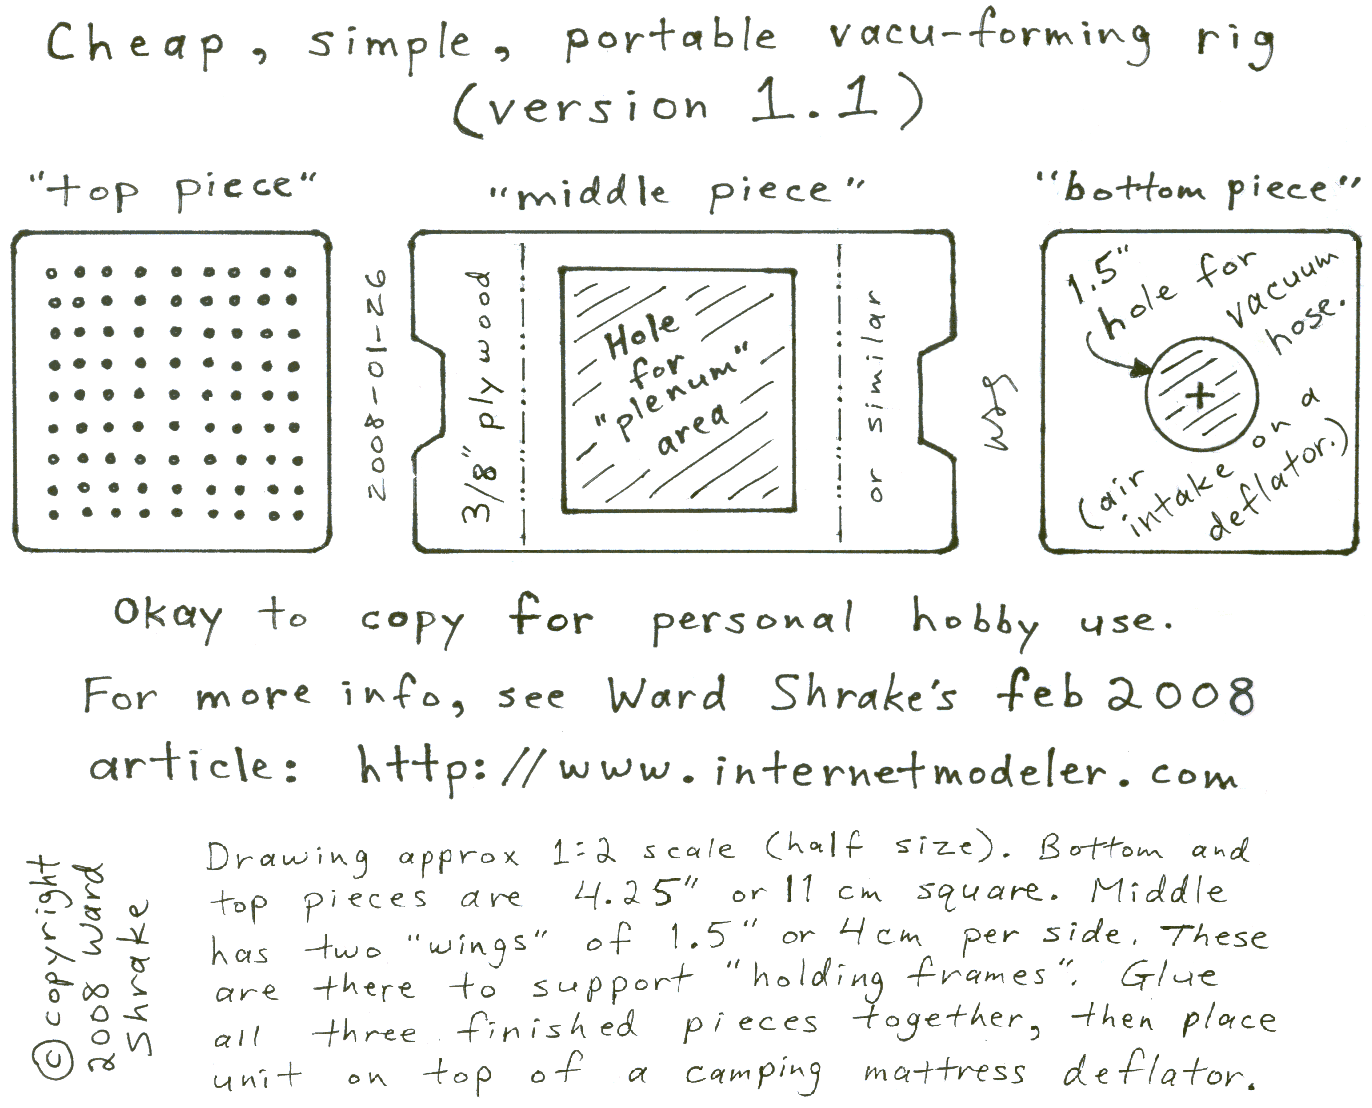 Cheap, simple, portable vacu-forming rig
(version 1.1)
"top piece"
"middle piece"
"bottom piece"
2008-01-26
3/8" plywood
Hole
for
"plenum"
area
or similar
1.5"
hole for
vacuum
hose.
(air
intake on a
deflator.)
Okay to copy for personal hobby use.
For more info, see Ward Shrake's feb 2008
article: http://www.internetmodeler.com
© copyright
2008 Ward
Shrake
Drawing approx 1:2 scale (half size). Bottom and
top pieces are 4.25" or 11 cm square. Middle
has two "wings" of 1.5" or 4cm per side. These
are there to support "holding frames". Glue
all three finished pieces together, then place
unit on top of a camping mattress deflator.